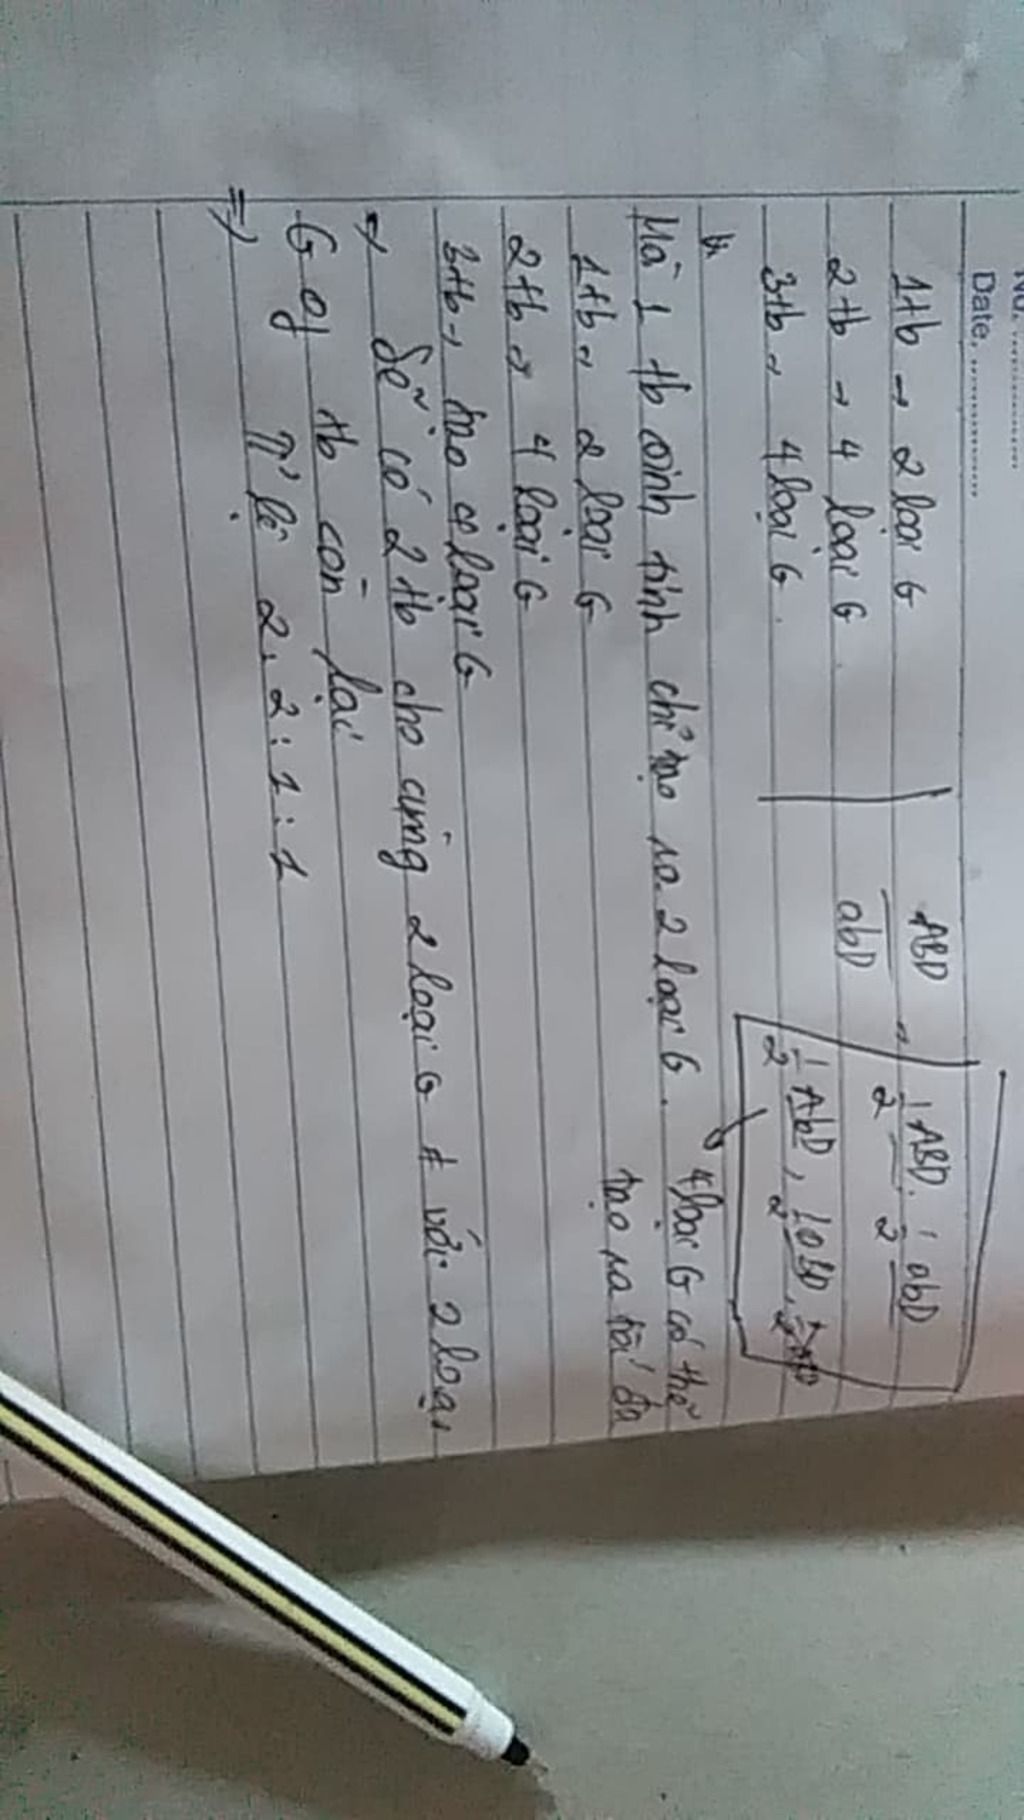 No. ..............
Date. ..................
1tb → 2 loại G
2tb → 4 loại G
3tb → 4 loại G.
ABD
abD
→ 1/2 ABD, 1/2 abD
1/2 AbD, 1/2 aBD,
Mà 1 tb sinh tinh chỉ tạo ra 2 loại G.
4 loại G có thể
tạo ra tối đa
1tb → 2 loại G
2tb → 4 loại G
3tb → tạo 4 loại G
=> Sẽ có 2 tb cho cùng 2 loại G ≠ với 2 loại
G of tb còn lại
=> Tỉ lệ 2:2:1:1